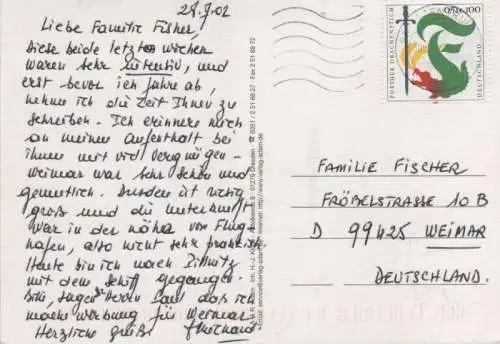 28.7.02
Liebe Familie Fisher.
Diese beide letzten wochen
waren sehr intensiv, und
erst bevor ich fahre ab,
nehme ich die Zeit Ihnen zu
schreiben. Ich erinnere mich
an meinen Aufenthalt bei
ihnen mit viel Vergnügen -
Weimar war sehr schön und
gemütlich. Dresden ist richtig
groß und die unterkunft
war in der nähe vom Flug-
hafen, also nicht sehr praktisch.
Heute bin ich nach Pillnitz
mit dem Schiff gegangen.
Bitte, sagen Herrn Paul daß ich
mache werbung für Weimar.
Herzliche grüße
FURTHER DRACHENSTICH
0,51+ 100
DEUTSCHLAND
FAMILIE FISCHER
FRÖBELSTRASSE 10 B
D 99425 WEIMAR
DEUTSCHLAND.